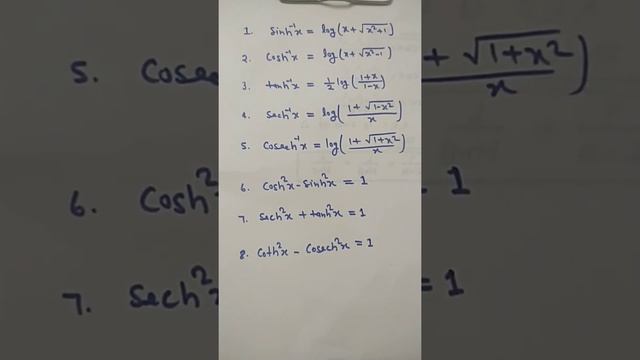 1. Sinh⁻¹x = log(x + √(x²+1))
2. Cosh⁻¹x = log(x + √(x²-1))
3. tanh⁻¹x = 1/2 log((1+x)/(1-x))
4. Sech⁻¹x = log((1 + √(1-x²))/x)
5. Cosech⁻¹x = log((1 + √(1+x²))/x)
6. Cosh²x - Sinh²x = 1
7. Sech²x + tanh²x = 1
8. Coth²x - Cosech²x = 1